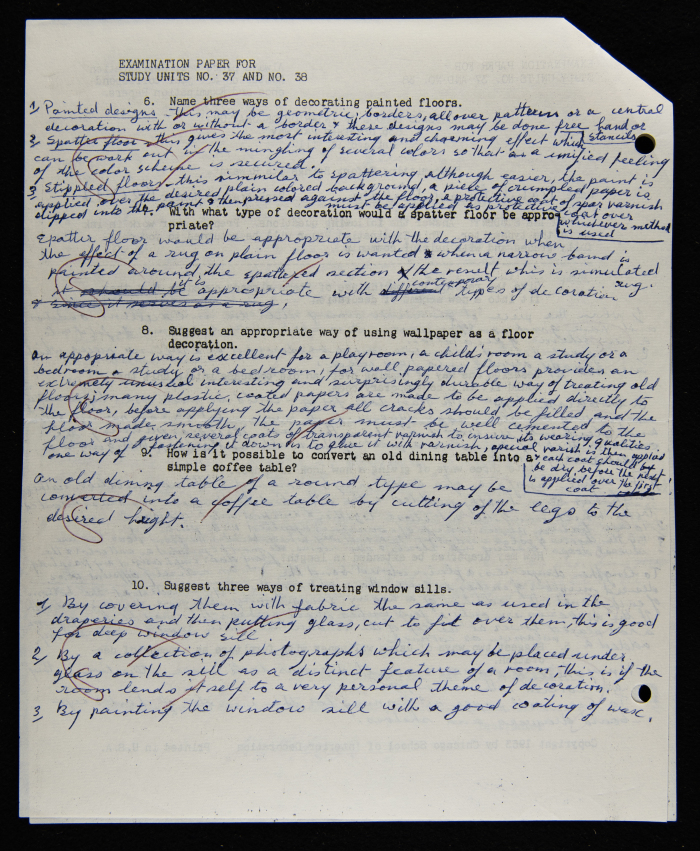 EXAMINATION PAPER FOR
STUDY UNITS NO. 37 AND NO. 38
6. Name three ways of decorating painted floors.
1, Painted designs - this may be geometric, borders, all over patterns or a central
decoration with or without a border & these designs may be done free hand or
stencils
2, Spatter floor - this gives the most interesting and charming effect which
can be work out, in the mingling of several colors so that in a unified feeling
of the color scheme is secured.
3, Stippled floors - this simmilar to spattering although easier, the paint is
applied over the desired plain colored background, a piece of crumpled paper is
dipped into the paint & then pressed against the floor, a protective coat of spar varnish
must be applied as protective coat over
whichever method
is used
7. With what type of decoration would a spatter floor be appro-
priate?
Spatter floor would be appropriate with the decoration when
the effect of a rug on plain floor is wanted & when a narrow band is
painted around, the spattered section & the result whis is simulated
rug.
it should be it is appropriate with different contemporary types of decoration
& since it serves as a rug,
8. Suggest an appropriate way of using wallpaper as a floor
decoration.
an appopriate way is excellent for a playroom, a child's room a study or a
bedroom a study, or a bedroom, for wall papered floors provides an
extremely unusual interesting and surprisingly durable way of treating old
floors; many plastic, coated papers are made to be applied directly to
the floor, before applying the paper all cracks should be filled and the
floor made, smooth, the paper must be well cemented to the
floor and given several coats of transparent varnish to insure its wearing qualities
one way of fastening it down is to glue it with varnish, special varish is then applied
& each coat should be
be dry, before the next
is applied over the first
coat
9. How is it possible to convert an old dining table into a
simple coffee table?
an old dining table of a round type may be
converted into a coffee table by cutting of the legs to the
desired height.
10. Suggest three ways of treating window sills.
1, By covering them with fabric the same as used in the
draperies and then putting glass, cut to fit over them, this is good
for deep window sill.
2, By a collection of photographs which may be placed under
glass on the sill as a distinct feature of a room, this is if the
room lends itself to a very personal theme of decoration.
3, By painting the window sill with a good coating of wax.